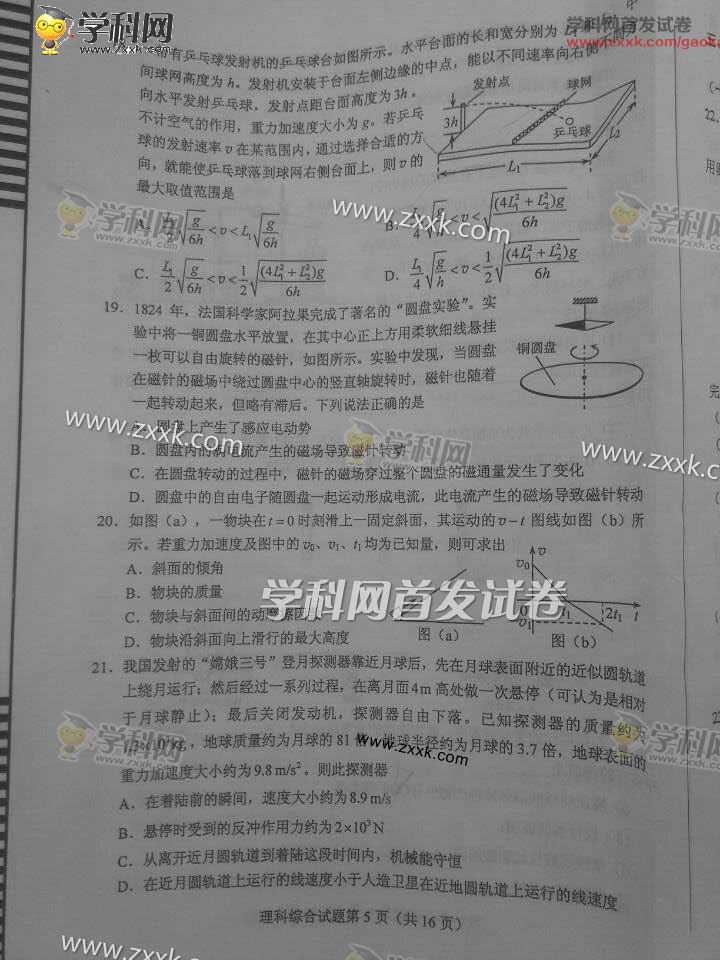 学科网首发试卷
www.zxxk.com/gaok
学科网
www.zxxk.com
带有乒乓球发射机的乒乓球台如图所示。水平台面的长和宽分别为 L₁和
间球网高度为 h。发射机安装于台面左侧边缘的中点,能以不同速率向右侧
向水平发射乒乓球,发射点距台面高度为 3h。
不计空气的作用,重力加速度大小为 g。若乒乓
球的发射速率 v 在某范围内,通过选择合适的方
向,就能使乒乓球落到球网右侧台面上,则 v 的
最大取值范围是
发射点
球网
3h
乒乓球
L₁
L₂
A. L₁/2 √(g/6h) < v < L₁√(g/6h)
B. L₁/4 √(g/h) < v < √((4L₁²+L₂²)g/6h)
C. L₁/2 √(g/6h) < v < 1/2 √((4L₁²+L₂²)g/6h)
D. L₁/4 √(g/h) < v < 1/2 √((4L₁²+L₂²)g/6h)
www.zxxk.com
学科网
www.zxxk.com
19. 1824 年,法国科学家阿拉果完成了著名的“圆盘实验”。实
验中将一铜圆盘水平放置,在其中心正上方用柔软细线悬挂
一枚可以自由旋转的磁针,如图所示。实验中发现,当圆盘
在磁针的磁场中绕过圆盘中心的竖直轴旋转时,磁针也随着
一起转动起来,但略有滞后。下列说法正确的是
铜圆盘
A. 圆盘上产生了感应电动势
B. 圆盘内的涡电流产生的磁场导致磁针转动
C. 在圆盘转动的过程中,磁针的磁场穿过整个圆盘的磁通量发生了变化
D. 圆盘中的自由电子随圆盘一起运动形成电流,此电流产生的磁场导致磁针转动
www.zxxk.com
学科网
www.zxxk.com
www.zxxk.com
20. 如图(a),一物块在 t=0 时刻滑上一固定斜面,其运动的 v-t 图线如图(b)所
示。若重力加速度及图中的 v₀、v₁、t₁ 均为已知量,则可求出
A. 斜面的倾角
B. 物块的质量
C. 物块与斜面间的动摩擦因数
D. 物块沿斜面向上滑行的最大高度
图(a)
v
v₀
0
t₁
2t₁
t
v₁
图(b)
学科网首发试卷
21. 我国发射的“嫦娥三号”登月探测器靠近月球后,先在月球表面附近的近似圆轨道
上绕月运行;然后经过一系列过程,在离月面 4m 高处做一次悬停(可认为是相对
于月球静止);最后关闭发动机,探测器自由下落。已知探测器的质量约为
1.3×10³kg,地球质量约为月球的 81 倍,地球半径约为月球的 3.7 倍,地球表面的
重力加速度大小约为 9.8 m/s²。则此探测器
A. 在着陆前的瞬间,速度大小约为 8.9 m/s
B. 悬停时受到的反冲作用力约为 2×10³N
C. 从离开近月圆轨道到着陆这段时间内,机械能守恒
D. 在近月圆轨道上运行的线速度小于人造卫星在近地圆轨道上运行的线速度
学科网
www.zxxk.com
www.zxxk.com
学科网
www.zxxk.com
理科综合试题第 5 页(共 16 页)
www.zxxk.com
学科网
www.zxxk.com
www.zxxk.com
22.